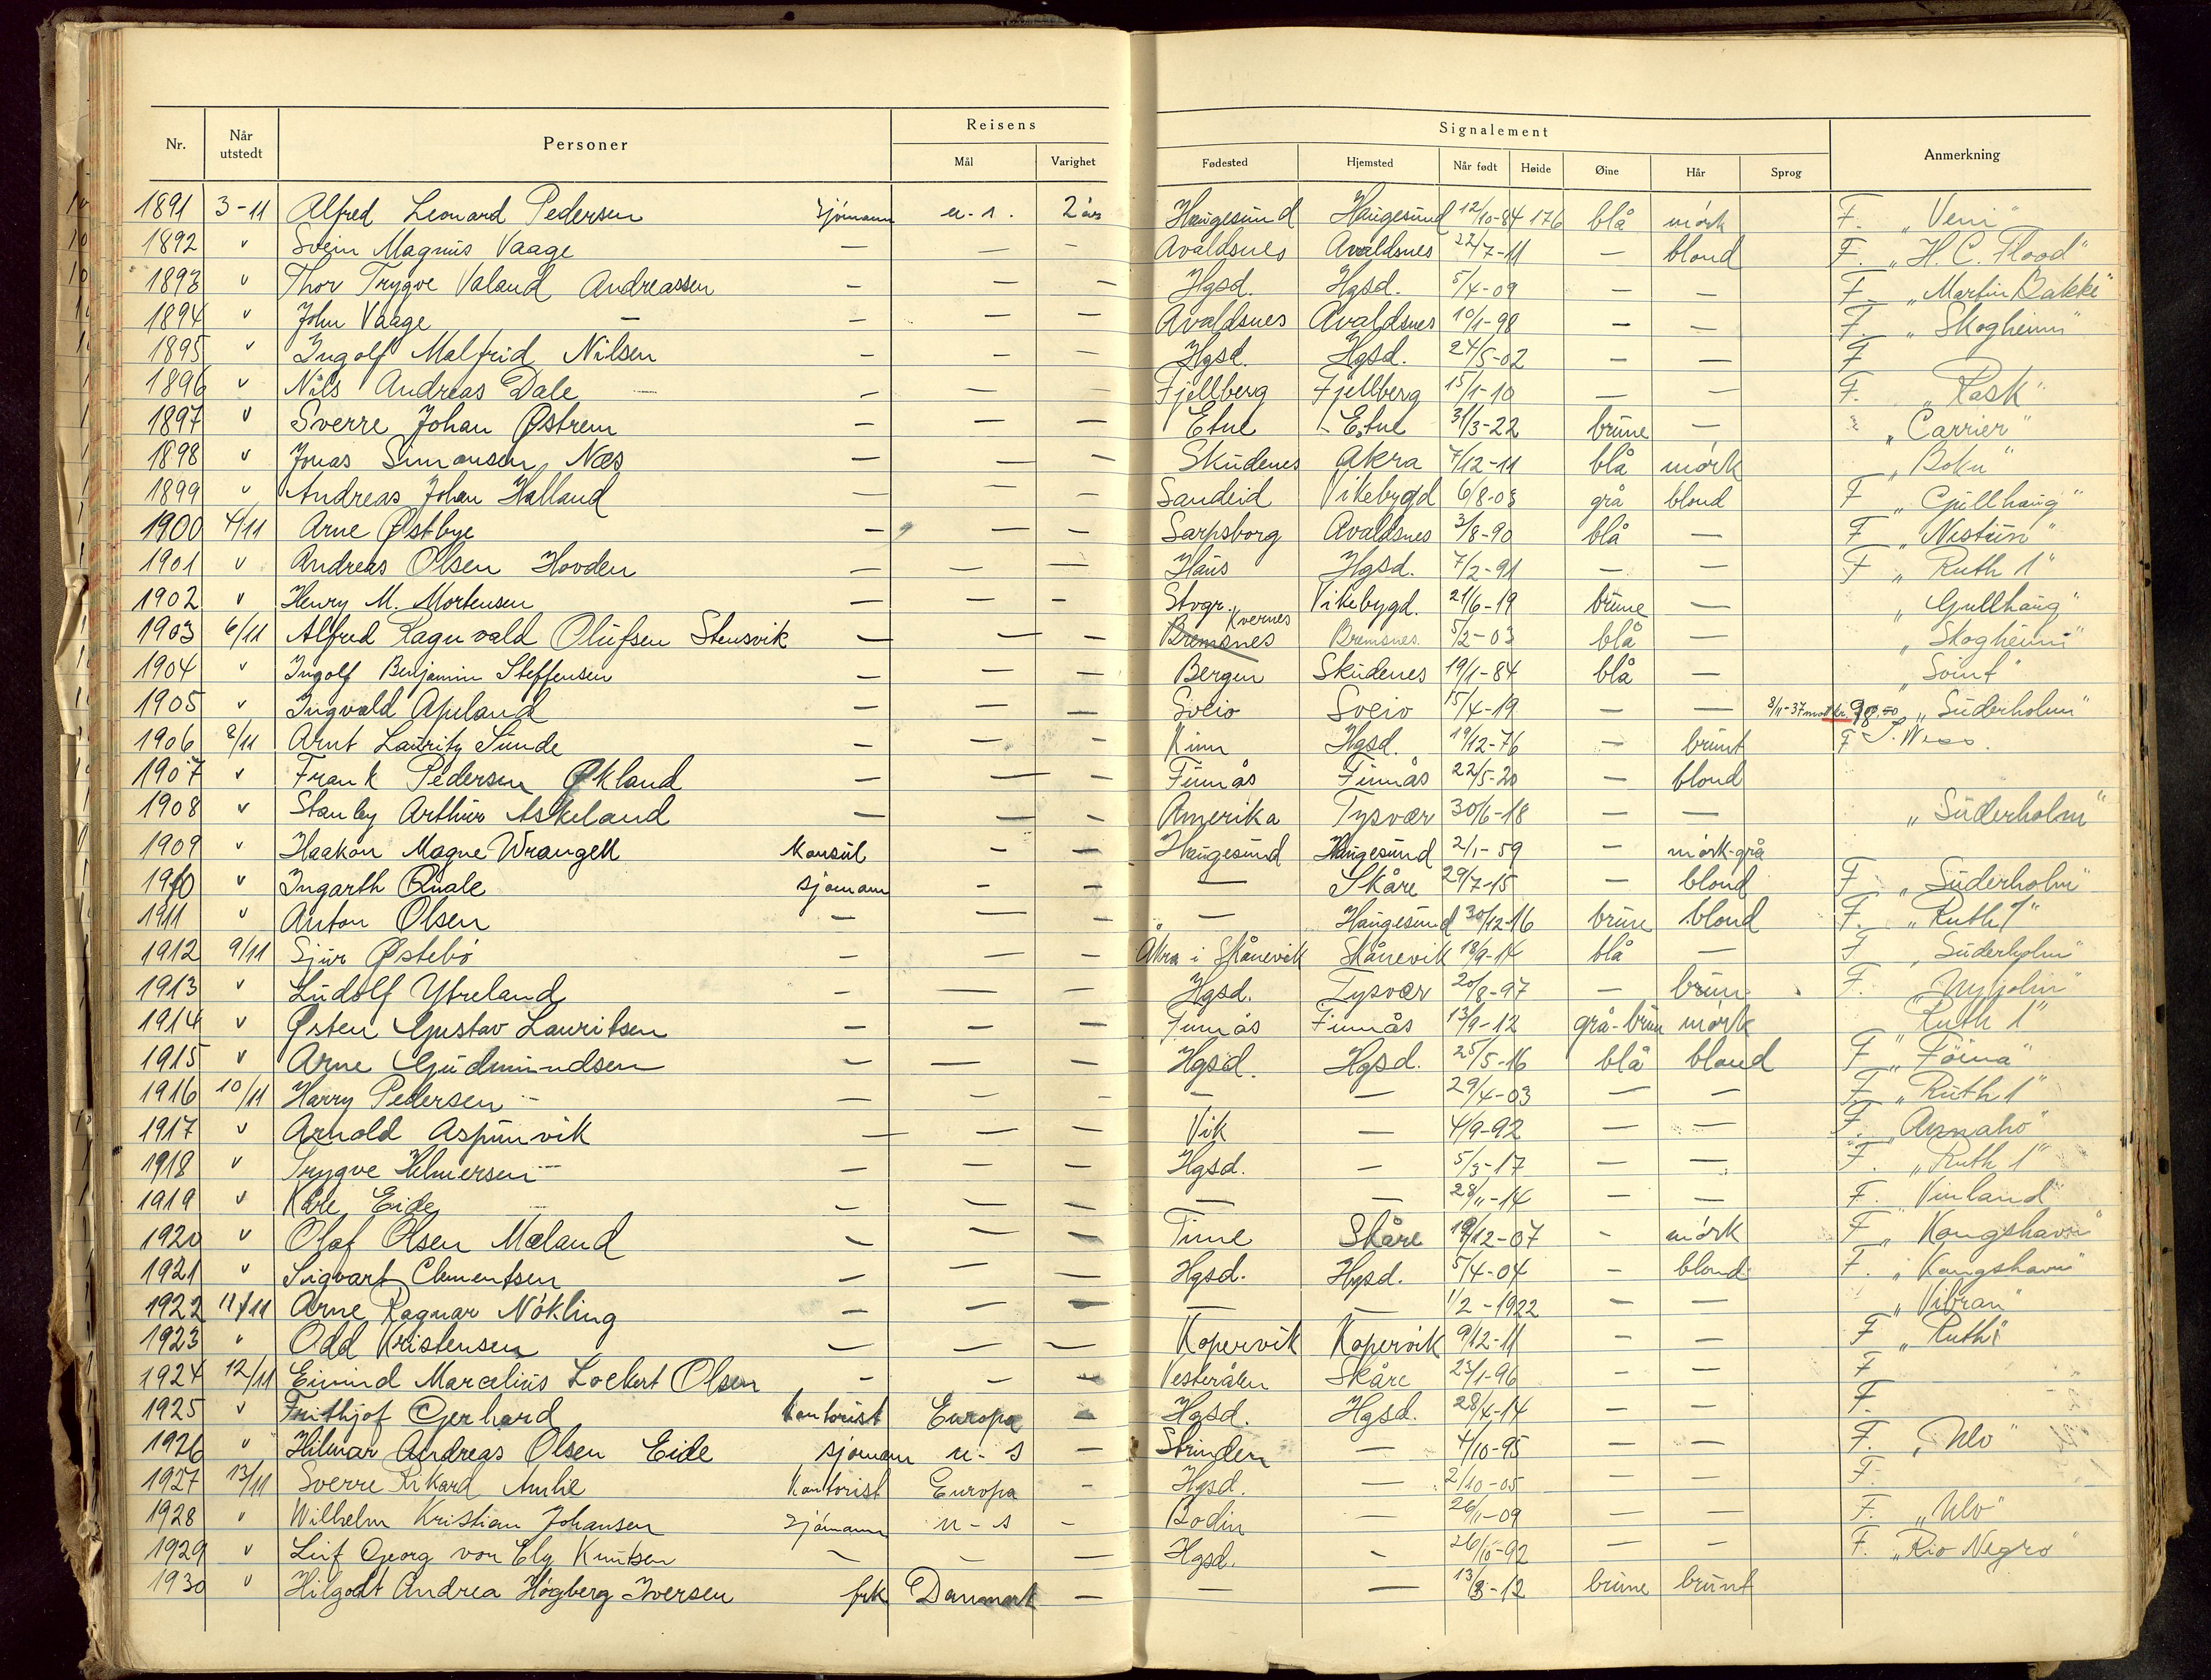 Nr. Når utstedt Personer Reisens Mål Varighet Signalement Fødested Hjemsted Når født Høide Øine Hår Sprog Anmerkning
1891 3-11 Alfred Leonard Pedersen sjömann u-s. 2 år Haugesund Haugesund 12/10-84 176 blå mörk F. „Veni"
1892 " Svein Magnus Vaage — — — Avaldsnes Avaldsnes 22/7-11 — blond F. „H.C. Flood"
1893 " Thor Trygve Valand Andreassen — — — Hgsd. Hgsd. 5/4-09 — — F. „Martin Bakke"
1894 " John Vaage — — — — Avaldsnes Avaldsnes 10/1-98 — — F. „Skogheim"
1895 " Ingolf Malfrid Nilsen — — — Hgsd. Hgsd. 24/5-02 — — F
1896 " Nils Andreas Dale — — — Fjellberg Fjellberg 15/1-10 — — F. „Rask"
1897 " Sverre Johan Østrem — — — Etne Etne 31/3-22 brune — „Carrier"
1898 " Jonas Simonsen Næs — — — Skudenes Akra 7/12-11 blå mörk „Bokn"
1899 " Andreas Johan Halland — — — Sandeid Vikebygd 6/8-08 grå blond F „Gullhaug"
1900 4/11 Arne Østbye — — — Sarpsborg Avaldsnes 3/8-90 blå — F „Nestun"
1901 " Andreas Olsen Hovden — — — Haus Hgsd. 7/2-91 — — F „Ruth 1"
1902 " Henry M. Mortensen — — — Stvgr. Vikebygd. 21/6-19 brune — „Gullhaug"
1903 6/11 Alfred Ragnvald Olufsen Stensvik — — — Bremsnes Kvernes Bremsnes. 5/2-03 blå — „Skogheim"
1904 " Ingolf Benjamin Steffensen — — — Bergen Skudenes 19/1-84 blå — „Soint"
1905 " Ingvald Apeland — — — Sveio Sveio 15/4-19 — — 8/11-37 mot kr. „Suderholm"
1906 8/11 Arnt Lauritz Sunde — — — Kinn Hgsd. 19/12-76 — brunt F
1907 " Frank Pedersen Økland — — — Finnås Finnås 22/5-20 — blond
1908 " Stanley Arthur Askeland — — — Amerika Tysvær 30/6-18 — — „Suderholm"
1909 " Haakon Magne Wrangell Konsul — — Haugesund Haugesund 2/1-59 — mörk-grå
1910 " Ingarth Qvale sjömann — — — Skåre 29/7-15 — blond F „Suderholm"
1911 " Anton Olsen — — — — Haugesund 30/12-16 brune blond F. „Ruth 1"
1912 9/11 Sjur Østebö — — — Åkra i Skånevik Skånevik 18/9-14 blå — F „Suderholm"
1913 " Ludolf Ytreland — — — Hgsd. Tysvær 20/8-97 — brun F. „Nyholm"
1914 " Østen Gustav Lauritsen — — — Finnås Finnås 13/9-12 grå-brun mörk „Ruth 1"
1915 " Arne Gudmundsen — — — Hgsd. Hgsd. 25/5-16 blå blond F „Föina"
1916 10/11 Harry Pedersen — — — — — 29/4-03 — — F. „Ruth 1"
1917 " Arnold Aspunvik — — — Vik — 4/9-92 — — F. „Annahö"
1918 " Trygve Helmersen — — — Hgsd. — 5/3-17 — — F. „Ruth 1"
1919 " Kåre Eide — — — — — 28/11-14 — — F. „Vinland"
1920 " Olaf Olsen Mæland — — — Time Skåre 19/12-07 — mörk F „Kongshavn"
1921 " Sigvart Clementsen — — — Hgsd. Hgsd. 5/4-04 — blond F. „Kongshavn"
1922 11/11 Arne Ragnar Nökling — — — — — 1/2-1922 — — „Vibran"
1923 " Odd Kristensen — — — Kopervik Kopervik 9/12-11 — — F „Ruth 1"
1924 12/11 Eivind Marcelius Lockert Olsen — — — Vesterålen Skåre 23/1-96 — — F
1925 " Frithjof Gerhard kontorist Europa — Hgsd. Hgsd. 28/4-14 — — F.
1926 " Hilmar Andreas Olsen Eide sjömann u-s — Strinden — 4/10-95 — — F. „Ulv"
1927 13/11 Sverre Rikard Amlie Kontorist Europa — Hgsd. — 2/10-05 — — F.
1928 " Wilhelm Kristian Johansen sjömann u-s — Bodin — 26/11-09 — — F. „Ulv"
1929 " Leif Georg von Ely Knutsen — — — Hgsd. — 26/10-92 — — F. „Rio Negro"
1930 " Hilgodt Andrea Högberg Iversen frk Danmark — — — 13/8-12 brune brunt